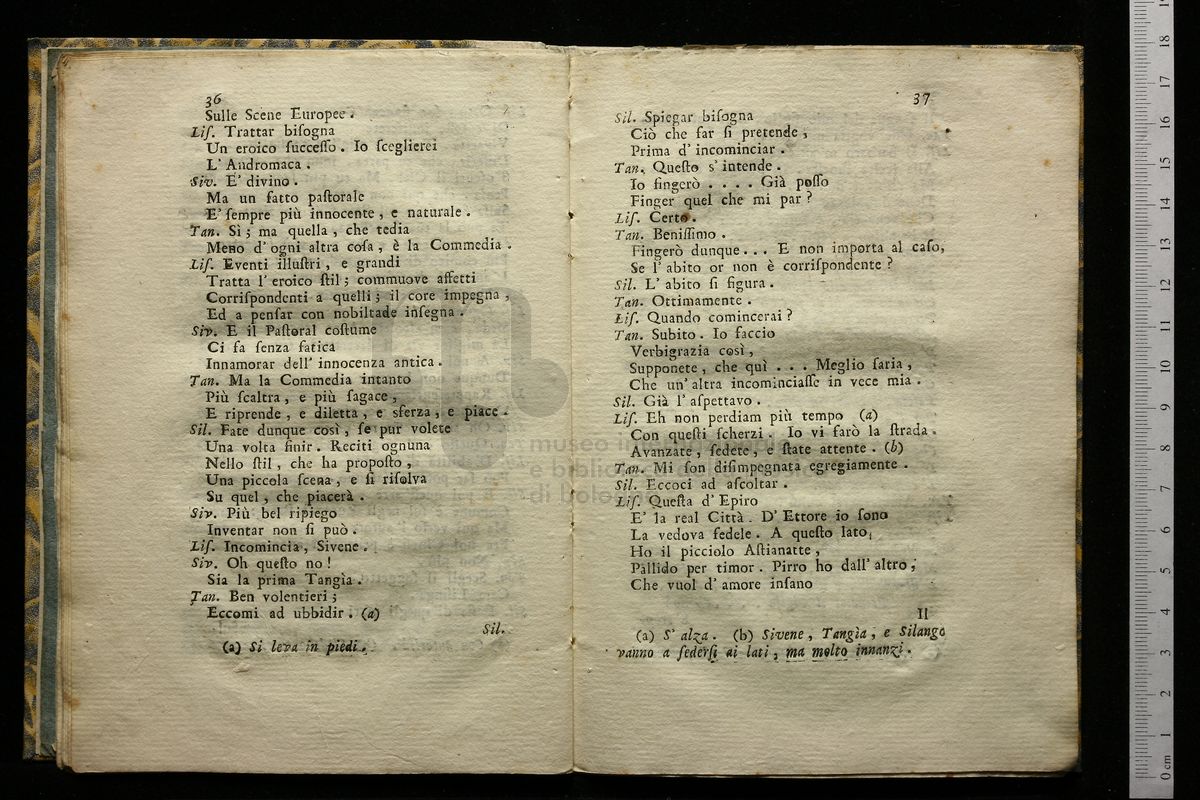 36
Sulle Scene Europee.
Liſ. Trattar biſogna
Un eroico ſucceſſo. Io ſceglierei
L' Andromaca.
Siv. E' divino.
Ma un fatto paſtorale
E' ſempre più innocente, e naturale.
Tan. Sì; ma quella, che tedia
Meno d'ogni altra coſa, è la Commedia.
Liſ. Eventi illuſtri, e grandi
Tratta l'eroico ſtil; commuove affetti
Corriſpondenti a quelli; il core impegna,
Ed a penſar con nobiltade inſegna.
Siv. E il Paſtoral coſtume
Ci fa ſenza fatica
Innamorar dell' innocenza antica.
Tan. Ma la Commedia intanto
Più ſcaltra, e più ſagace,
E riprende, e diletta, e sferza, e piace.
Sil. Fate dunque così, ſe pur volete
Una volta finir. Reciti ognuna
Nello ſtil, che ha propoſto,
Una piccola ſcena, e ſi riſolva
Su quel, che piacerà.
Siv. Più bel ripiego
Inventar non ſi può.
Liſ. Incomincia, Sivene.
Siv. Oh queſto no!
Sia la prima Tangìa.
Tan. Ben volentieri;
Eccomi ad ubbidir. (a)
Sil.
(a) Si leva in piedi.
37
Sil. Spiegar biſogna
Ciò che far ſi pretende,
Prima d'incominciar.
Tan. Queſto s'intende.
Io fingerò .... Già poſſo
Finger quel che mi par?
Liſ. Certo.
Tan. Beniſſimo.
Fingerò dunque... E non importa al caſo,
Se l'abito or non è corriſpondente?
Sil. L'abito ſi figura.
Tan. Ottimamente.
Liſ. Quando comincerai?
Tan. Subito. Io faccio
Verbigrazia così,
Supponete, che quì ... Meglio ſaria,
Che un'altra incominciaſſe in vece mia.
Sil. Già l'aſpettavo.
Liſ. Eh non perdiam più tempo (a)
Con queſti ſcherzi. Io vi farò la ſtrada.
Avanzate, ſedete, e ſtate attente. (b)
Tan. Mi ſon diſimpegnata egregiamente.
Sil. Eccoci ad aſcoltar.
Liſ. Queſta d'Epiro
E' la real Città. D'Ettore io ſono
La vedova fedele. A queſto lato,
Ho il picciolo Aſtianatte,
Pallido per timor. Pirro ho dall'altro,
Che vuol d'amore inſano
Il
(a) S'alza. (b) Sivene, Tangìa, e Silango
vanno a ſederſi ai lati, ma molto innanzi.